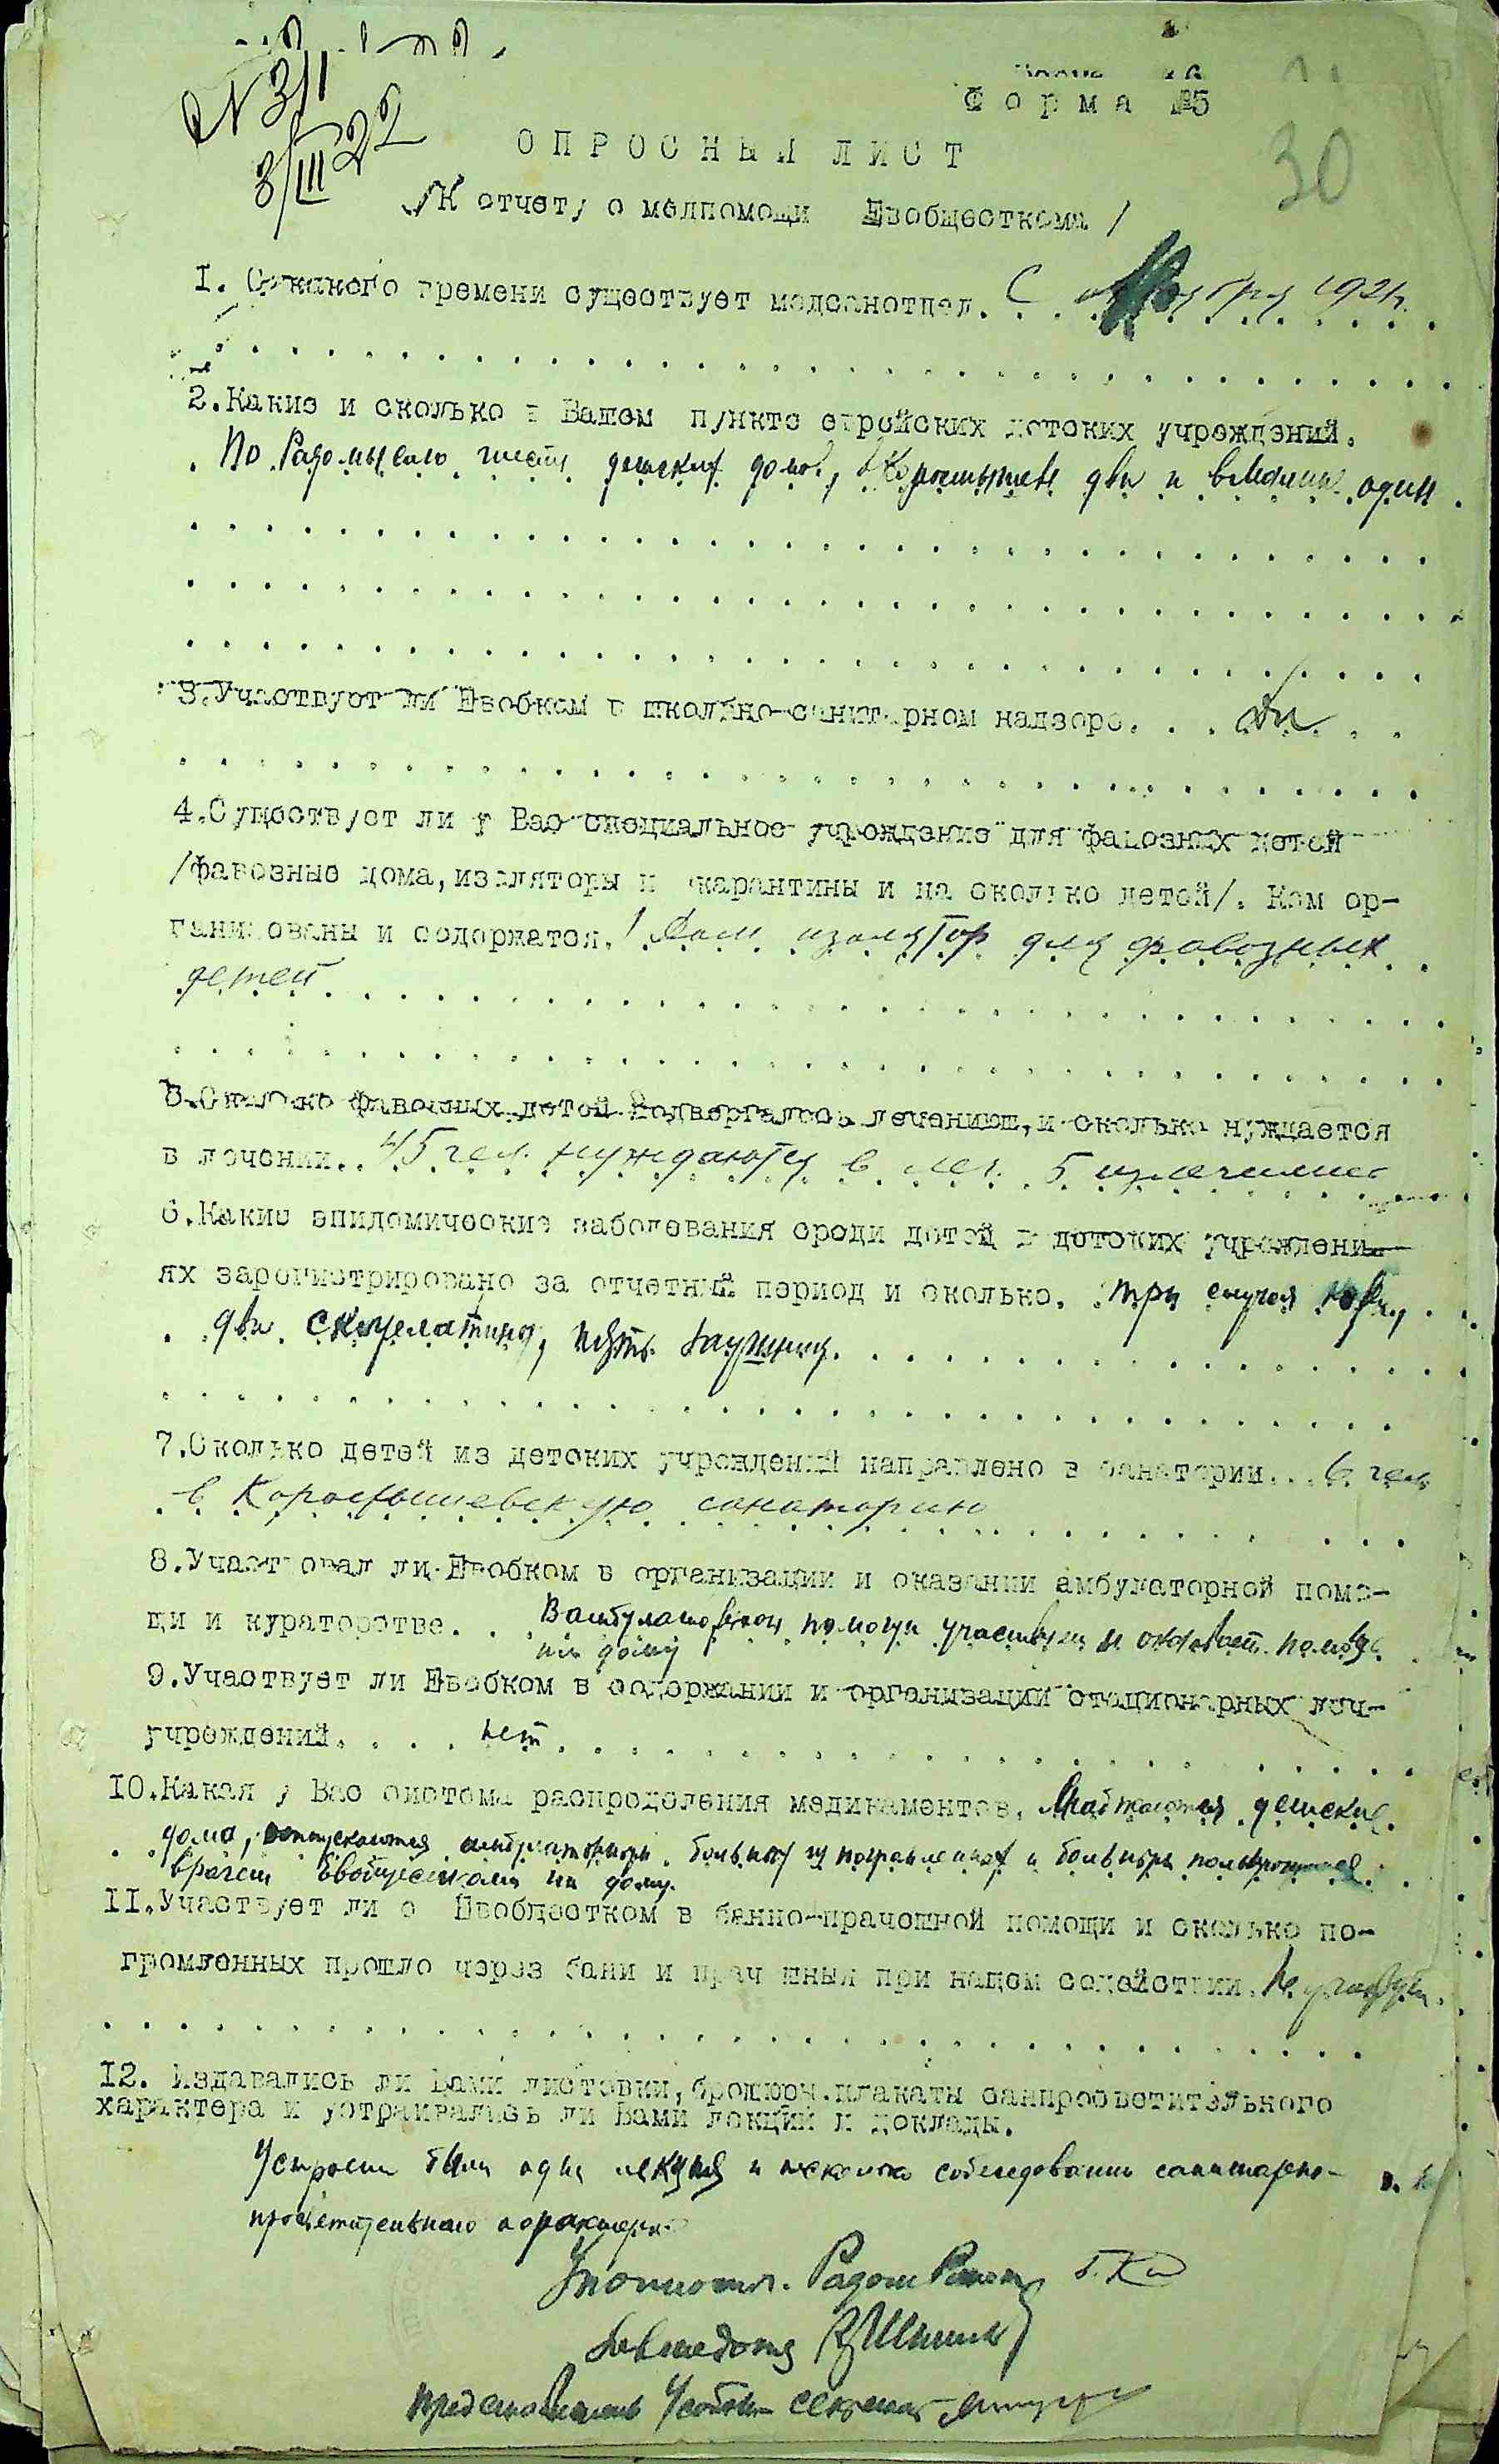 N 311
3/III 22
Форма №5
30
ОПРОСНЫЙ ЛИСТ
/К отчету о медпомощи Евобщесткома/
I. С какого времени существует медсанотдел. С 1921 г.
2. Какие и сколько в Вашем пункте еврейских детских учреждений.
По Радомыслю шесть детских домов, в Коростышеве два и в Малине один
3. Участвует ли Евобком в школьно-санитарном надзоре. Да
4. Существует ли у Вас специальное учреждение для фавозных детей
/фавозные дома, изоляторы и карантины и на сколько детей/. Кем ор-
ганизованы и содержатся. 1 Дом изолятор для фавозных
детей
5. Сколько фавозных детей подвергалось лечению, и сколько нуждается
в лечении. 45 чел. нуждаются в леч. 5 излечились
6. Какие эпидемические заболевания среди детей в детских учреждени-
ях зарегистрировано за отчетный период и сколько. три случая кори,
два скарлатина, пять
7. Сколько детей из детских учреждений направлено в санатории... 6 чел
в Коростышевскую санаторию
8. Участвовал ли Евобком в организации и оказании амбулаторной помо-
щи и кураторстве. В амбулаторной помощи участвует и оказывает помощь
на дому
9. Участвует ли Евобком в содержании и организации стационарных леч-
учреждений. нет
10. Какая у Вас система распределения медикаментов. Снабжаются детские
дома, отпускаются амбулаторным больным и больным пользующимся
врачем Евобщесткома на дому.
II. Участвует ли Евобщестком в банно-прачешной помощи и сколько по-
громленных прошло через бани и прачешные при нашем содействии. Не участвует.
12. Издавались ли Вами листовки, брошюры, плакаты санпросветительного
характера и устраивались ли Вами лекции и доклады.
Устроены были одна лекция и несколько собеседований санитарно-
просветительного характера
Уполномоч. Радом
Завмедотд
Представитель